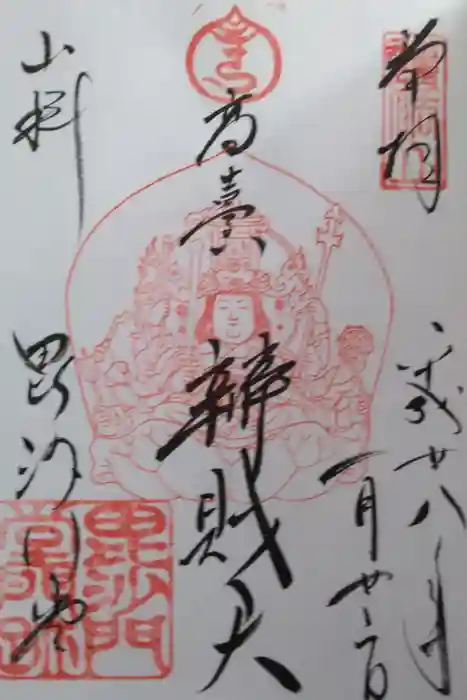 奉拝
平成廿八年
一月廿二日
高臺
辨財天
山科
毘沙門堂
毘沙門
堂跡